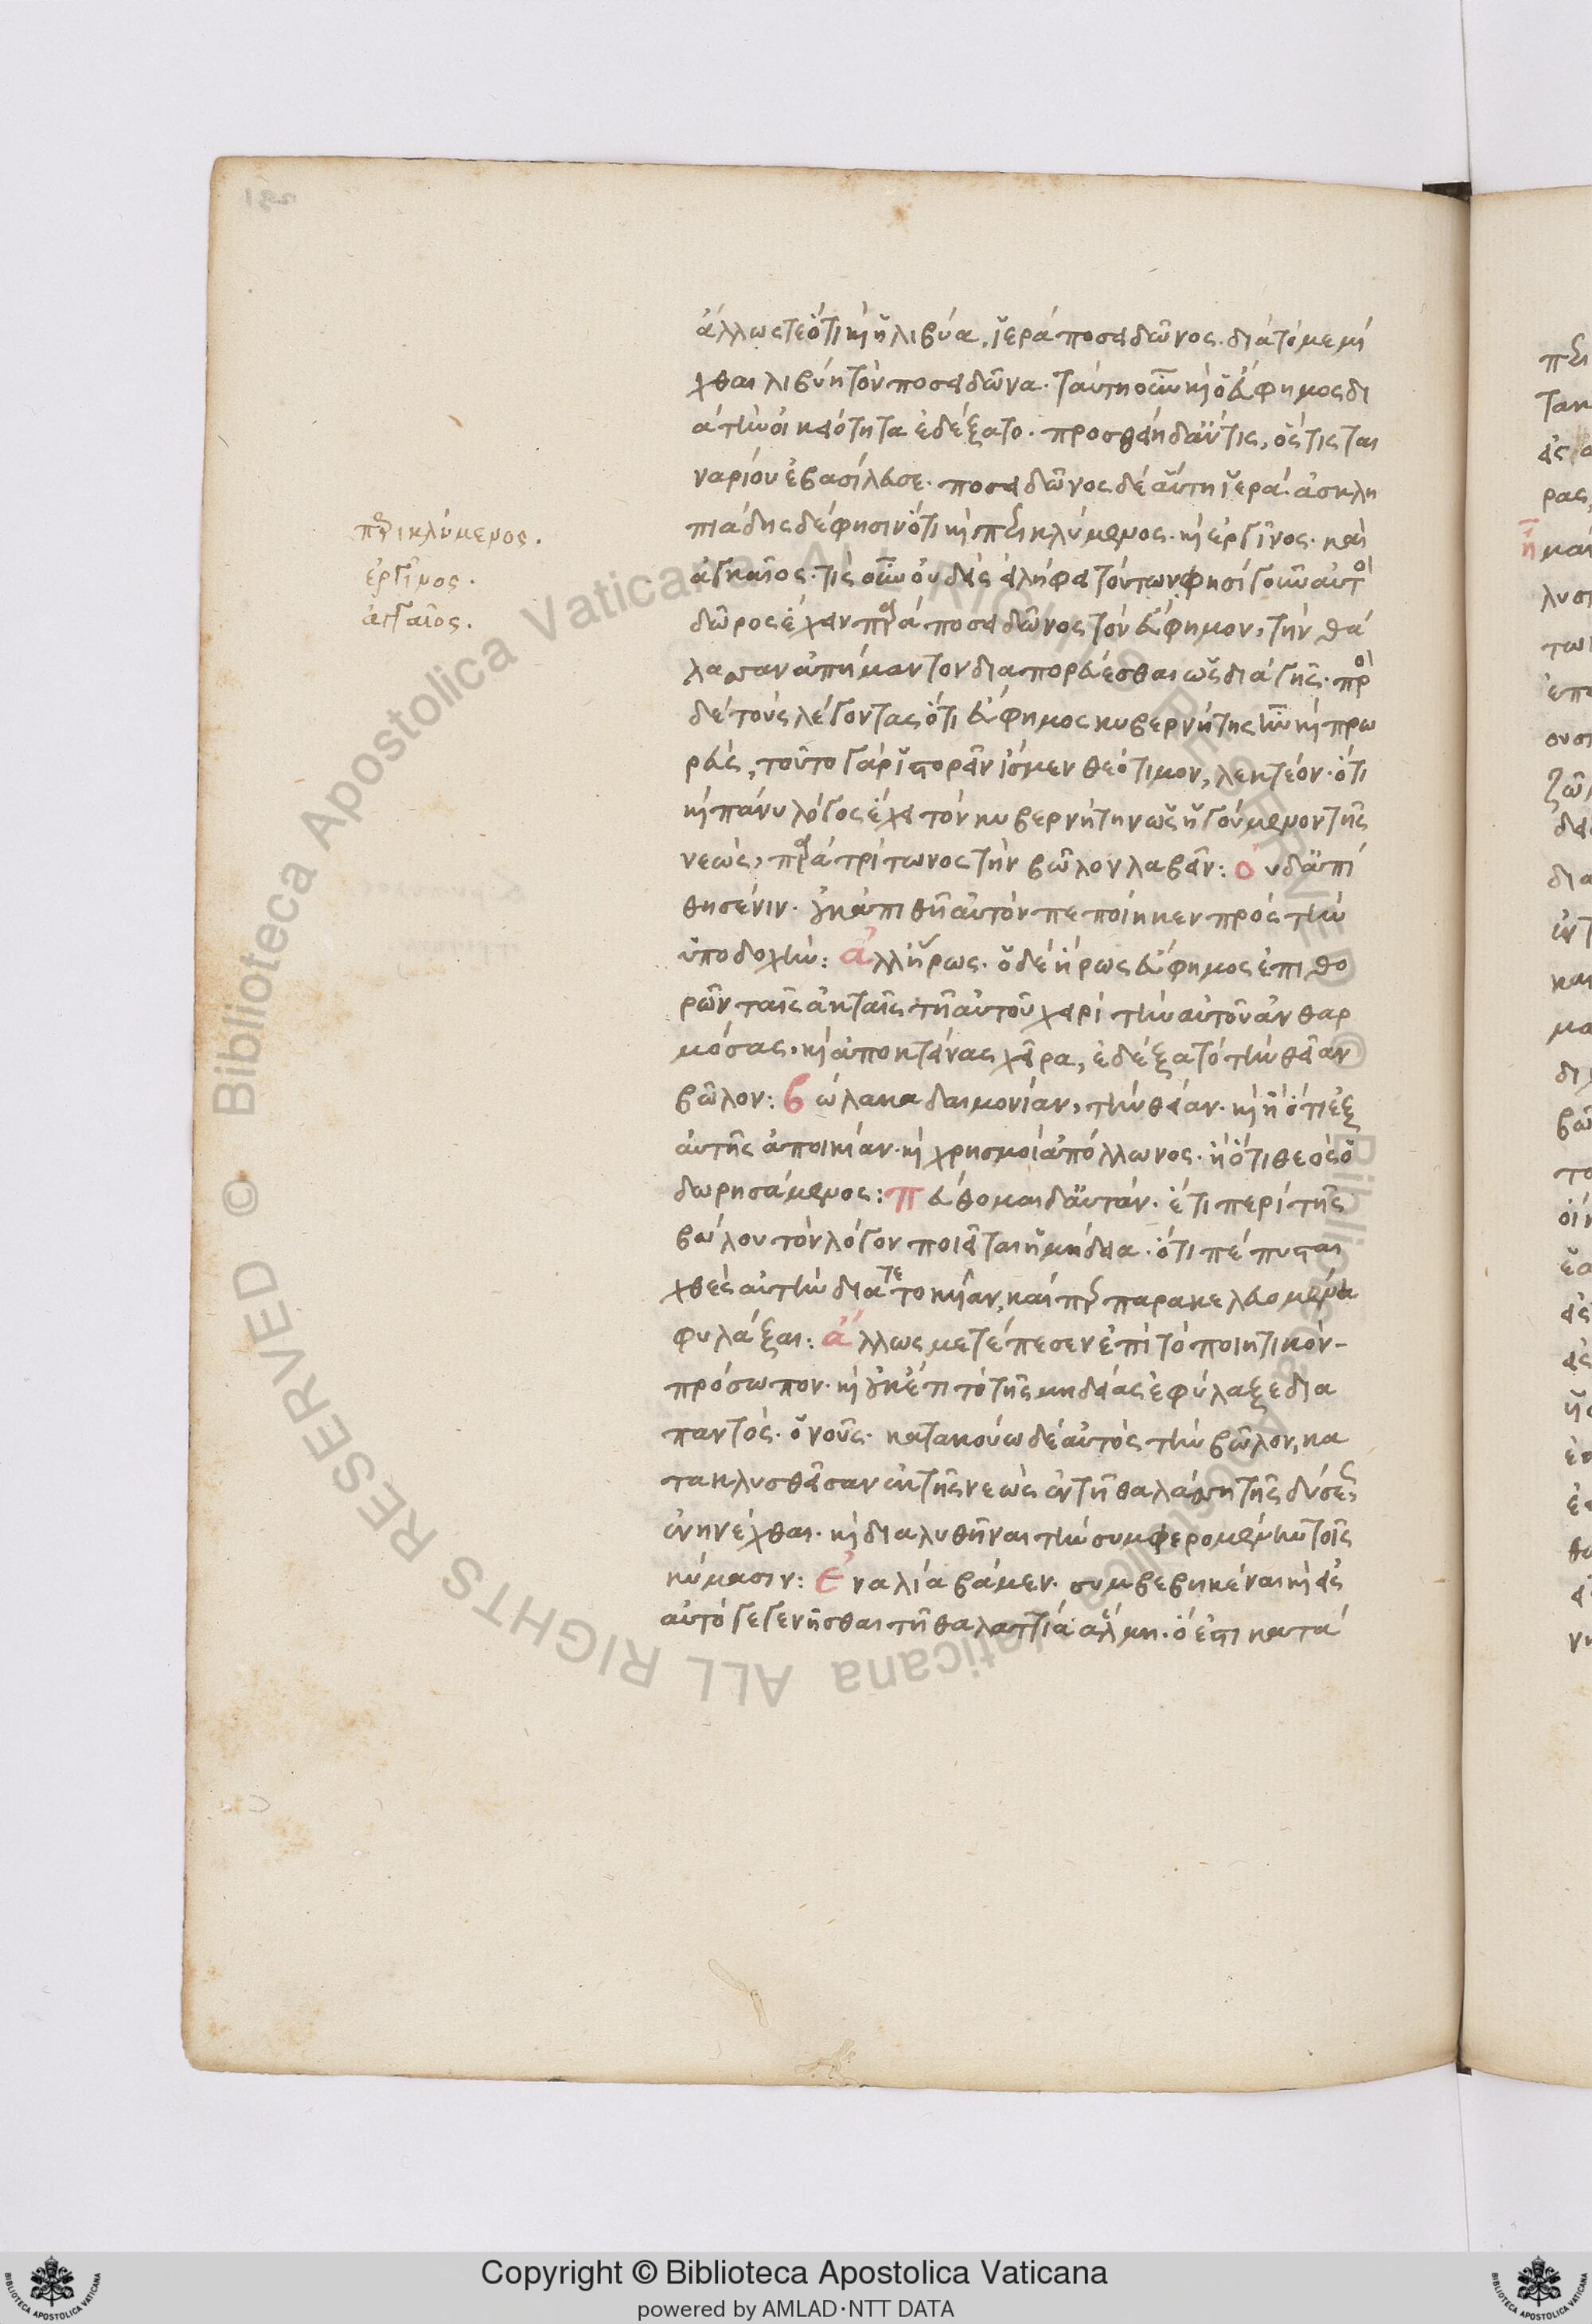 ἄλλως τε ὅτι καὶ ἡ λιβύα, ἱερὰ ποσειδῶνος. διὰ τὸ μεμί
χθαι λιβύη τὸν ποσειδῶνα. ταύτη οὖν καὶ ὁ εὔφημος δι
ὰ τὴν οἰκειότητα ἐδέξατο. προσθείη δ' ἄν τις, ὅς τις ται
ναρίου ἐβασίλευσε. ποσειδῶνος δὲ αὕτη ἱερά. ἀσκλη
πιάδης δέ φησιν ὅτι καὶ περικλύμενος. καὶ ἐργῖνος. καὶ
ἀγκαῖος. τίς οὖν οὐδεὶς εἰλήφει τούτων φησὶ γοῦν αὐτο
δῶρος ἔχειν παρὰ ποσειδῶνος τὸν εὔφημον, τὴν θά
λασσαν ἀπήμαντον διαπορεύεσθαι ὡς διὰ γῆς. πρὸ
δὲ τοὺς λέγοντας ὅτι εὔφημος κυβερνήτης ἦν καὶ πρω
ρεύς, τοῦτο γὰρ ἱστορεῖν ἴσμεν θεότιμον, λεκτέον. ὅτι
καὶ πάνυ λόγος ἔχει τὸν κυβερνήτην ὡς ἡγούμενον τῆς
νεὼς, παρὰ τρίτωνος τὴν βῶλον λαβεῖν: οὐδ' ἀπί
θησέ νιν. οὐκ ἀπιθῆ αὐτὸν πεποίηκεν πρὸς τὴν
ὑποδοχήν: ἀλλ' ἥρως. ὁ δὲ ἥρως εὔφημος ἐπιθο
ρὼν ταῖς ἀκταῖς τῆ αὐτοῦ χειρὶ τὴν αὐτοῦ ἀνθαρ
μόσας. καὶ ἀποκτείνας χεῖρα, ἐδέξατο τὴν θείαν
βῶλον: βώλακα δαιμονίαν, τὴν θείαν. καὶ ἢ ὅτι ἐξ
αὐτῆς ἀποικίαν. καὶ χρησμοὶ ἀπόλλωνος. ἢ ὅτι θεὸς ὁ
δωρησάμενος: πεύθομαι δ' αὐτάν. ἔτι περὶ τῆς
βώλου τὸν λόγον ποιεῖται ἡ μήδεια. ὅτι πέπυσται
χθὲς αὐτὴν διατετοκηίαν, καίπερ παρακελευομένη
φυλάξαι: ἄλλως μετέπεσεν ἐπὶ τὸ ποιητικὸν
πρόσωπον. καὶ οὐκ ἔτι τὸ τῆς μηδείας ἐφύλαξε δια
παντός. ὁ νοῦς. κατακούω δὲ αὐτὸς τὴν βῶλον, κα
τακλυσθεῖσαν ἐκ τῆς νεὼς ἐν τῆ θαλάσση τῆς δύσεως
ἐνηνέχθαι. καὶ διαλυθῆναι τὴν συμφερομένην τοῖς
κύμασιν: ἐναλία βάμεν. συμβεβηκέναι καὶ εἰς
αὐτὸ γεγενῆσθαι τῆ θαλαττία ἅλμη. ὅ ἐστι κατὰ
περικλύμενος.
ἐργῖνος.
ἀγκαῖος.
Copyright © Biblioteca Apostolica Vaticana
powered by AMLAD·NTT DATA
© Biblioteca Apostolica Vaticana ALL RIGHTS RESERVED © Biblioteca Apostolica Vaticana ALL RIGHTS RESERVED